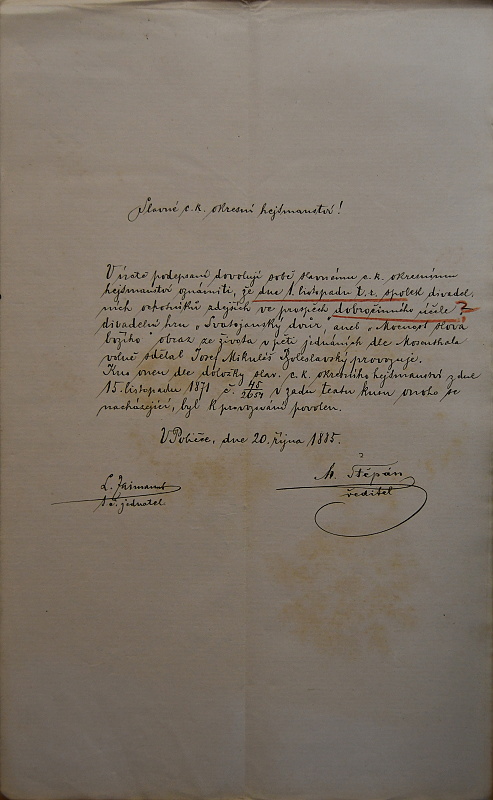 Slavné c. k. okresní hejtmanství!
V úctě podepsaní dovolují sobě slavnému c. k. okresnímu
hejtmanství oznámiti, že dne 1. listopadu t. r. spolek divadel
ních ochotníků zdejších ve prospěch dobročinného účele ?
divadelní hru „Svatojanský dvůr," aneb „Mocnost slova
božího" obraz ze života v pěti jednáních dle Mosenthala
volně sdělal Josef Mikuláš Boleslavský provozuje.
Kus onen dle doložky slav. c. k. okresního hejtmanství z dne
15. listopadu 1871 č. v zadu textu kusu onoho se
nacházející, byl k provozování povolen.
V Poličce, dne 20. října 1885.
L.
t. č. jednatel
M. Štěpán
ředitel